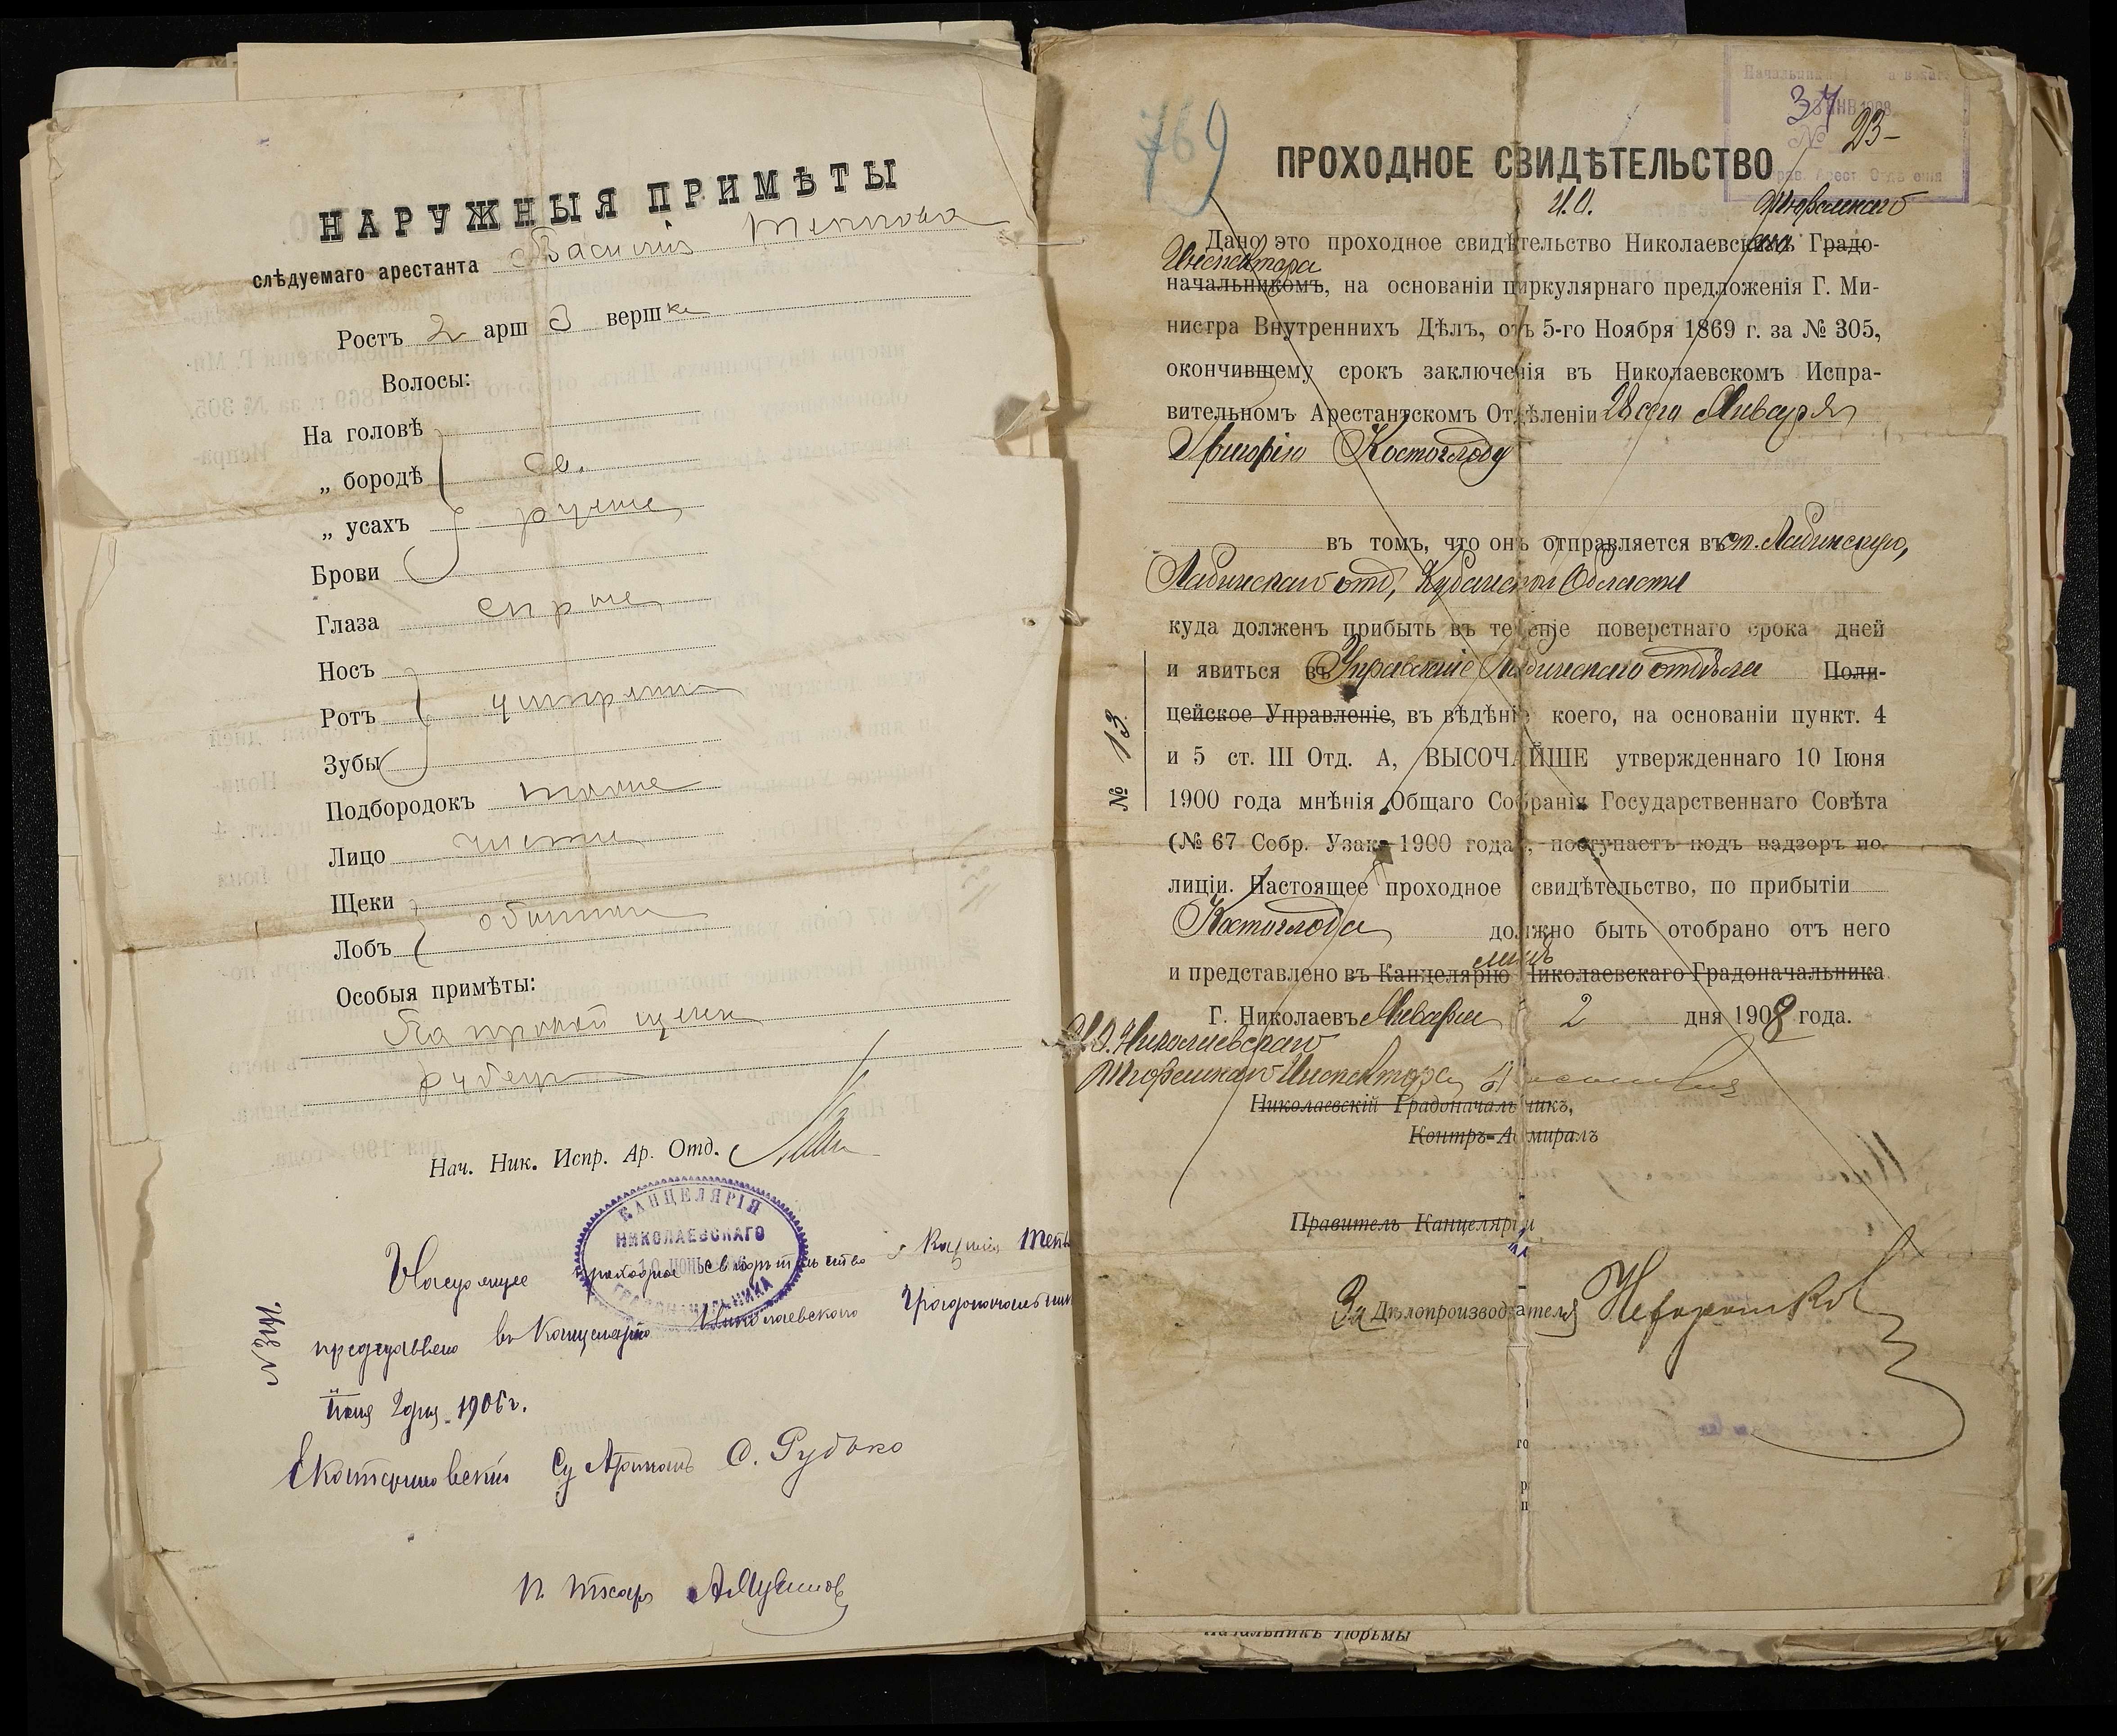 НАРУЖНЫЯ ПРИМѢТЫ
слѣдуемаго арестанта Василія
Ростъ 2 арш 3 вершка
Волосы:
На головѣ
„ бородѣ св.
„ усахъ русые
Брови
Глаза сѣрые
Носъ
Ротъ умѣренные
Зубы
Подбородокъ
Лицо чистое
Щеки
Лобъ
Особыя примѣты:
На правой щекѣ
рубецъ
Нач. Ник. Испр. Ар. Отд.
КАНЦЕЛЯРІЯ
НИКОЛАЕВСКАГО
ГРАДОНАЧАЛЬНИКА
Настоящее проходное свидѣтельство
представлено въ Канцелярію Николаевскаго
Іюня 2 дня 1906 г.
Екатериновскій О. Рудько
769
37
№ 23-
ПРОХОДНОЕ СВИДѢТЕЛЬСТВО
И.О. Тюремнаго
Дано это проходное свидѣтельство Николаевскаго Градо-
Инспектора
начальникомъ, на основаніи циркулярнаго предложенія Г. Ми-
нистра Внутреннихъ Дѣлъ, отъ 5-го Ноября 1869 г. за № 305,
окончившему срокъ заключенія въ Николаевскомъ Испра-
вительномъ Арестантскомъ Отдѣленіи 28 сего Января
Григорію Костоглоду
въ томъ, что онъ отправляется въ ст. Лабинскую,
Лабинскаго отд, Кубанской Области
куда долженъ прибыть въ теченіе поверстнаго срока дней
и явиться въ Управленіе Лабинскаго отдѣла Поли-
цейское Управленіе, въ вѣдѣніе коего, на основаніи пункт. 4
№ 13.
и 5 ст. III Отд. А, ВЫСОЧАЙШЕ утвержденнаго 10 Іюня
1900 года мнѣнія Общаго Собранія Государственнаго Совѣта
(№ 67 Собр. Узак. 1900 года), поступаетъ подъ надзоръ по-
лиціи. Настоящее проходное свидѣтельство, по прибытіи
Костоглода должно быть отобрано отъ него
и представлено въ Канцелярію Николаевскаго Градоначальника
Г. Николаевъ Января 2 дня 1908 года.
И.О. Николаевскаго
Тюремнаго Инспектора
Николаевскій Градоначальникъ,
Контръ-Адмиралъ
Правитель Канцеляріи
За Дѣлопроизводителя
Начальникъ Тюрьмы